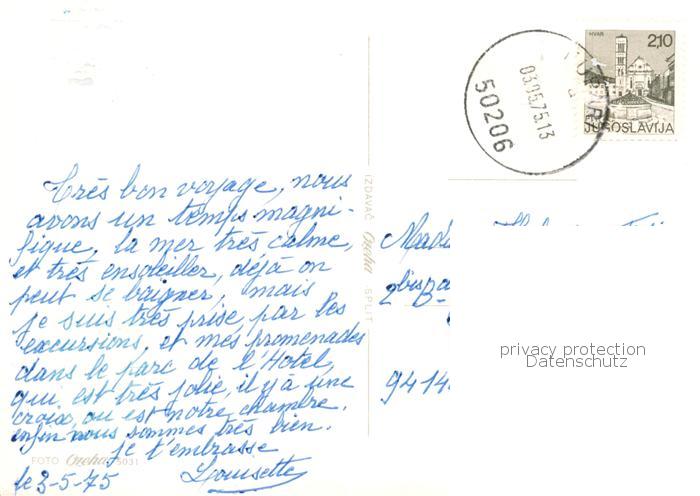 HVAR
2,10
JUGOSLAVIJA
03.05.75.13
50206
Très bon voyage, nous
avons un temps magni-
fique, la mer très calme,
et très ensoleiller, déjà on
peut se baigner, mais
je suis très prise par les
excursions, et mes promenades
dans le parc de l'Hotel,
qui est très jolie, il y a une
croix, ou est notre chambre.
enfin nous sommes très bien.
je t'embrasse
Lousette
le 3-5-75
FOTO Ozeha 5031
IZDAVAČ Ozeha SPLIT
Mad
2 bis
9414
privacy protection
Datenschutz